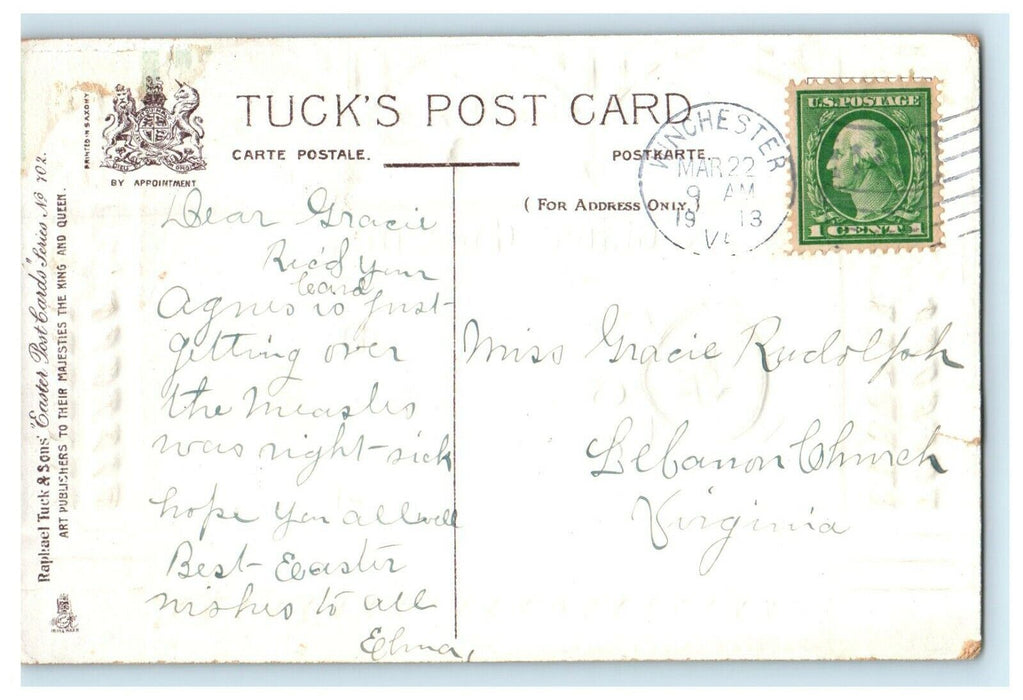 TUCK'S POST CARD
CARTE POSTALE. POSTKARTE
(FOR ADDRESS ONLY.)
PRINTED IN SAXONY
BY APPOINTMENT
Raphael Tuck & Sons' "Easter Post Cards" Series No 702.
ART PUBLISHERS TO THEIR MAJESTIES THE KING AND QUEEN.
WINCHESTER
MAR 22
9 AM
1913
VA
U.S. POSTAGE
1 CENT 1
Dear Gracie
Rec'd your
Card
Agnes is just
getting over
the Measles
was right sick
hope you all well
Best Easter
wishes to all
Elma,
Miss Gracie Rudolph
Lebanon Church
Virginia